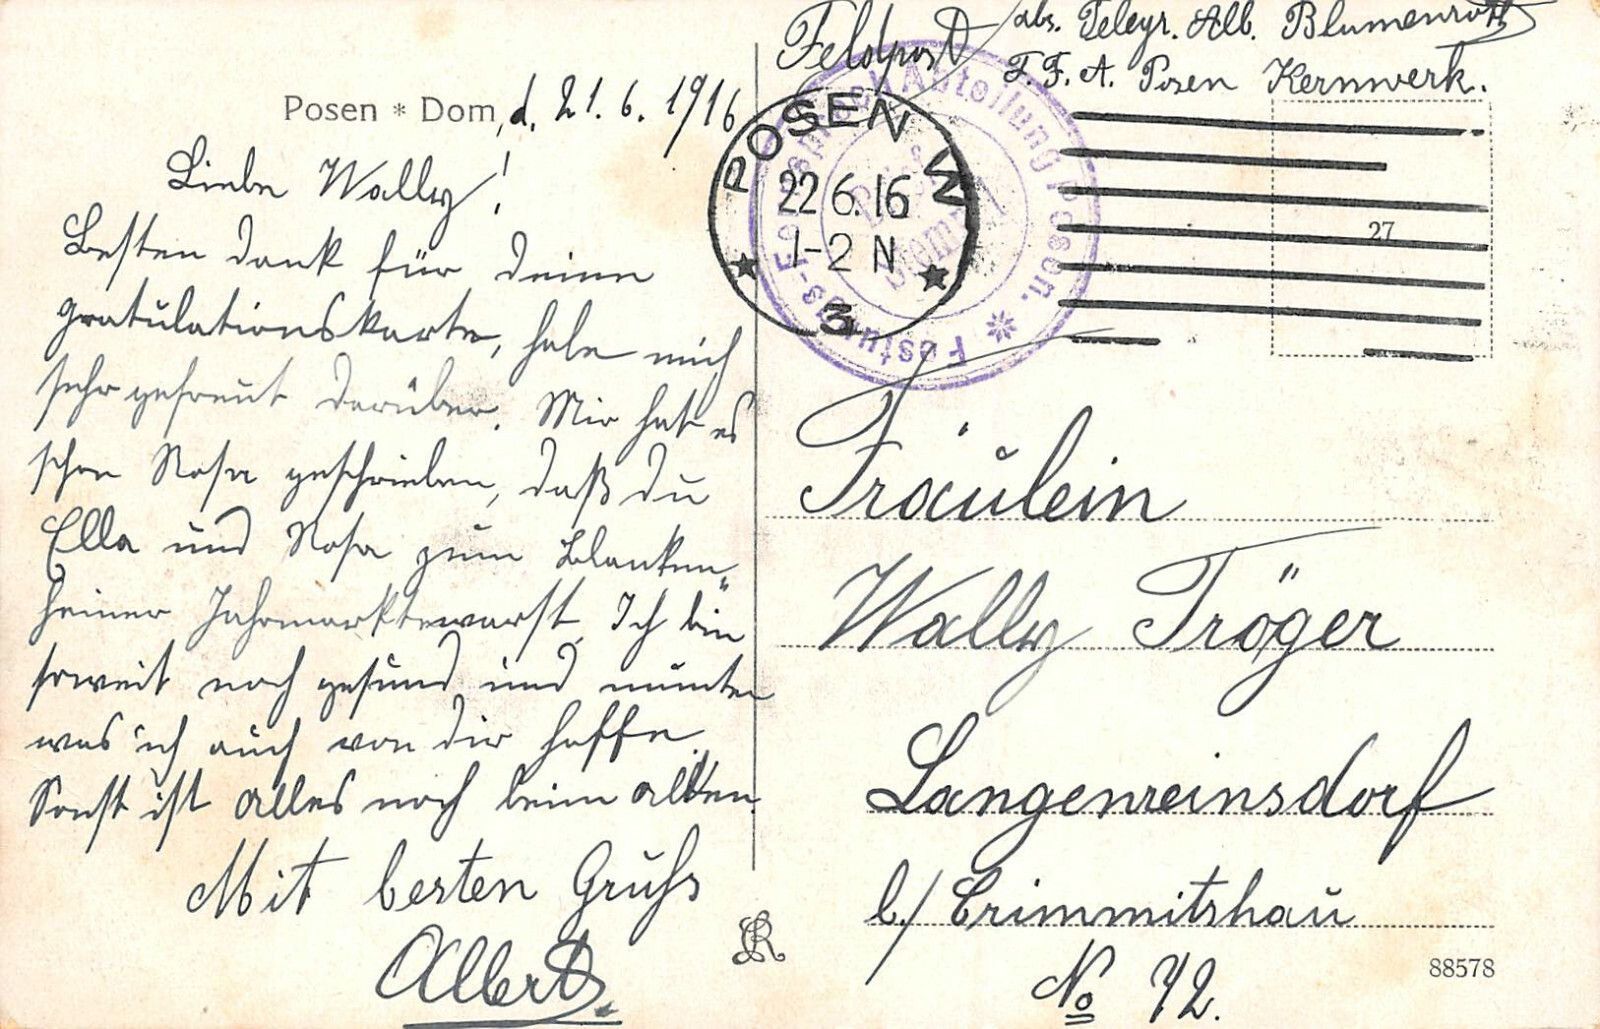 Feldpost
abs. Telegr. Alb. Blumenroth
F. F. A. Posen Kernwerk.
Posen * Dom, d. 21. 6. 1916
POSEN W
22 6. 16
1-2 N
* 3 *
Festungs-Fernsprech-Abteilung Posen. *
Brief
Stempel
27
Liebe Wally!
Besten Dank für deine
Gratulationskarte, habe mich
sehr gefreut darüber. Mir hat es
schon Rosa geschrieben, daß du
Ella und Rosa zum Blanken„
heiner Jahrmarkte warst. Ich bin
soweit noch gesund und munter
was ich auch von dir hoffe.
Sonst ist alles noch beim alten.
Mit besten Gruß
Albert.
Fräulein
Wally Tröger
Langenreinsdorf
b./ Crimmitshau
No 72.
88578